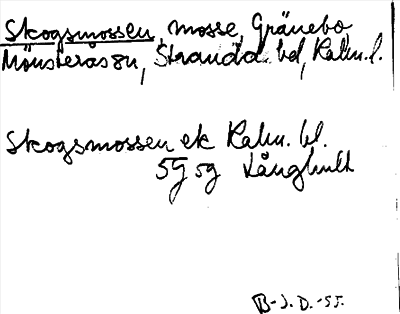 Skogsmossen, mosse, Gränebo
Mönsterås sn, Stranda hd, Kalm. l.
Skogsmossen ek Kalm. bl.
5G 5g Långhult
B-J. D. -55.